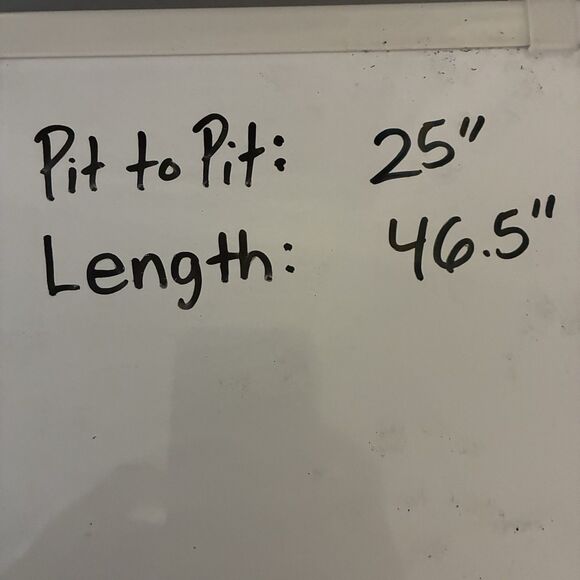 Pit to Pit: 25"
Length: 46.5"